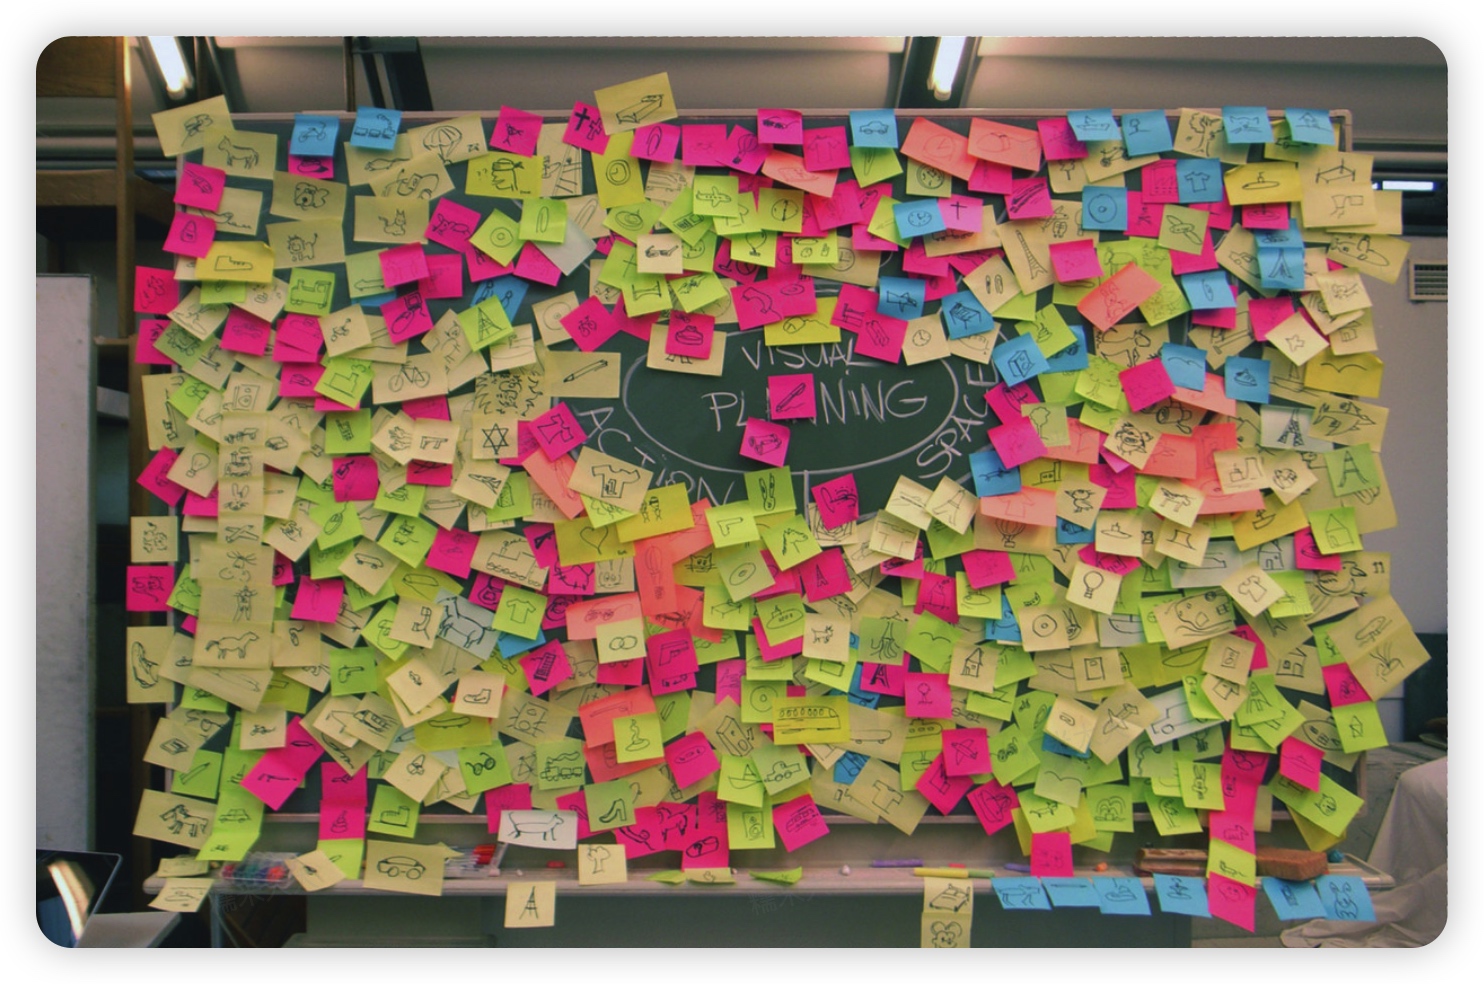 VISUAL
PL NNING
ACTION
SPACE